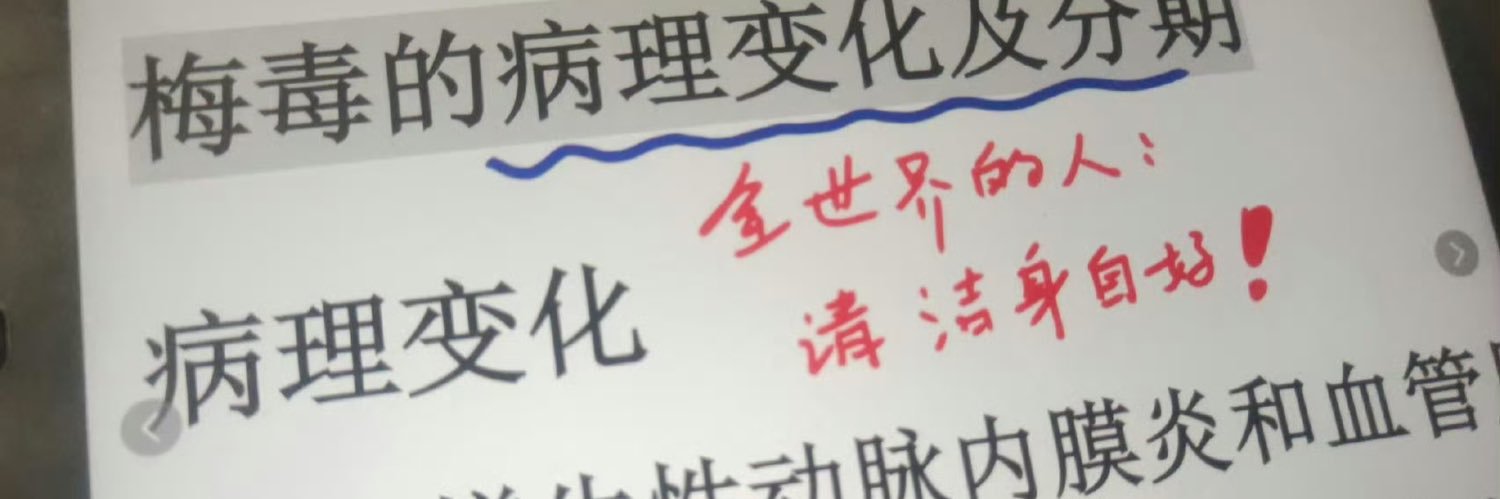 梅毒的病理变化及分期
全世界的人：
请洁身自好！
病理变化
增生性动脉内膜炎和血管